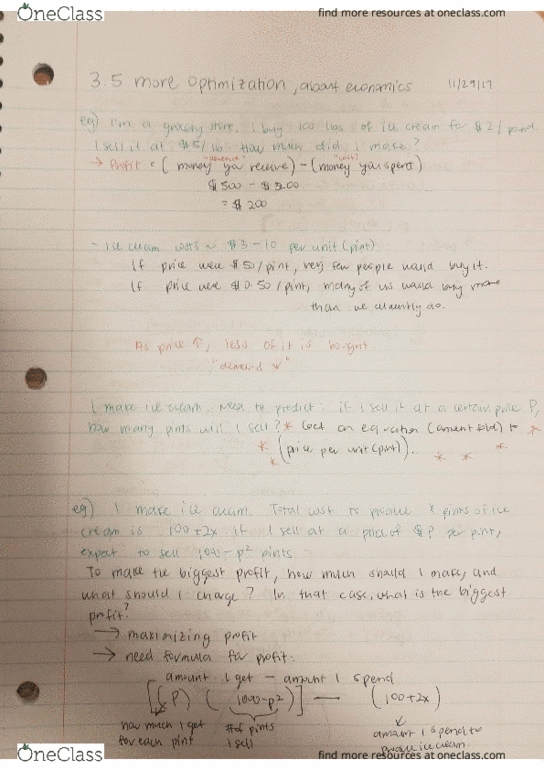 OneClass
find more resources at oneclass.com
3.5 more optimization, about economics
11/29/17
eg) I'm a grocery store. I buy 100 lbs of ice cream for $2/pound.
I sell it at $5/lb. How much did I make?
"revenue" "cost"
→ Profit = (money you receive) - (money you spent)
$500 - $200
= $200
- Ice cream costs ~ $3-10 per unit (pint)
If price were $50/pint, very few people would buy it.
If price were $0.50/pint, many of us would buy more
than we currently do.
As price ↑, less of it is bought.
"demand ↓"
I make ice cream. Need to predict: if I sell it at a certain price P,
how many pints will I sell? * an equation (amount sold) to *
* (price per unit (pint)). * * *
eg) I make ice cream. Total cost to produce x pints of ice
cream is 100+2x. If I sell at a price of $P per pint,
expect to sell 1000-p² pints.
To make the biggest profit, how much should I make, and
what should I charge? In that case, what is the biggest
profit?
→ maximizing profit
→ need formula for profit:
amount I get - amount I spend
[(P) (1000-p²)] — (100+2x)
how much I get
for each pint
# of pints
I sell
amount I spend to
produce ice cream.
OneClass
find more resources at oneclass.com